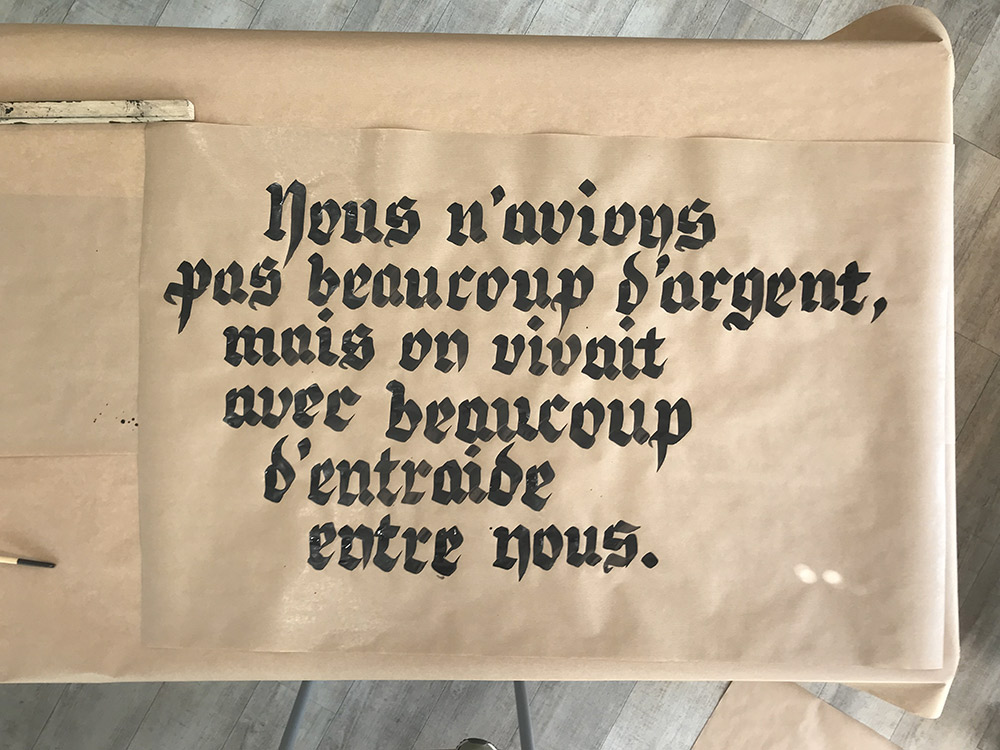 Nous n'avions
pas beaucoup d'argent,
mais on vivait
avec beaucoup
d'entraide
entre nous.